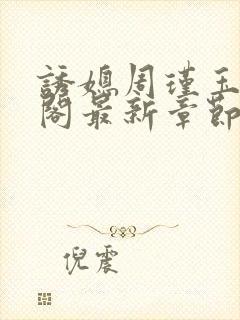 誘媳周瑾玉
閣最新章節
倪震